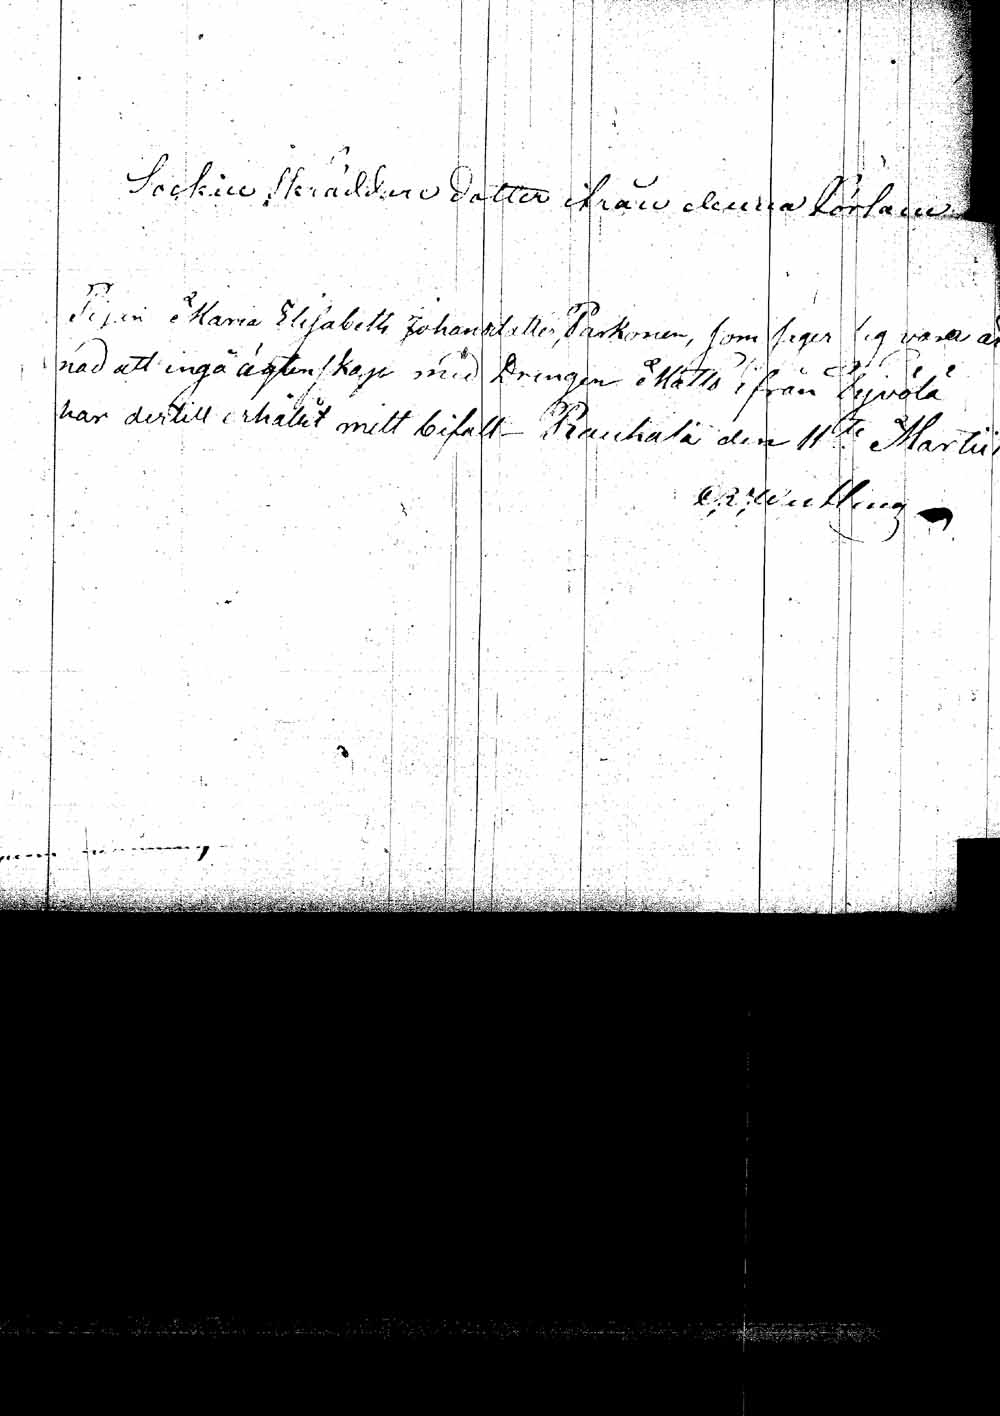 Sockne Skräddare dotter ifrån denna Församl
Pigan Maria Elisabeth Johansdotter Parkonen, som säger sig vara är
nad att ingå ägtenskap med Drengen Matts ifrån
har dertill erhålit mitt bifall – Rauhala den 11te Martii